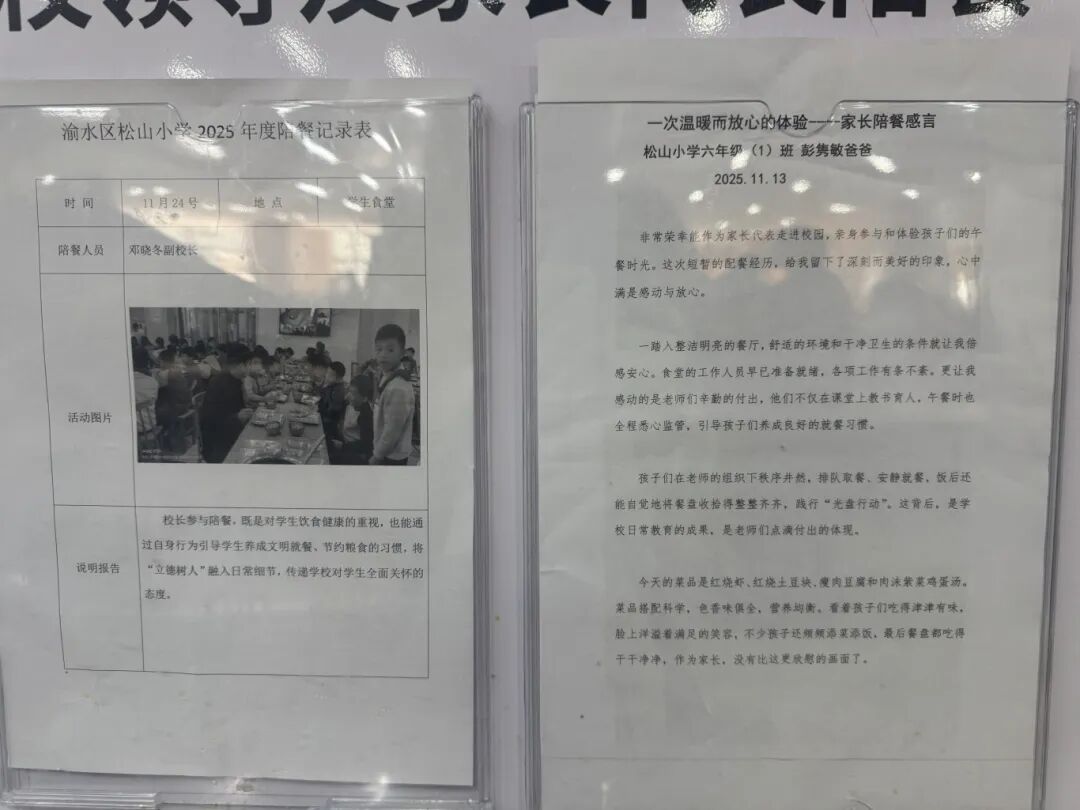 校领导及家长代表陪餐
渝水区松山小学 2025 年度陪餐记录表
时 间 11月24号 地 点 学生食堂
陪餐人员 邓晓冬副校长
活动图片
说明报告
校长参与陪餐，既是对学生饮食健康的重视，也能通
过自身行为引导学生养成文明就餐、节约粮食的习惯，将
“立德树人”融入日常细节，传递学校对学生全面关怀的
态度。
一次温暖而放心的体验----家长陪餐感言
松山小学六年级（1）班 彭隽敏爸爸
2025.11.13
非常荣幸能作为家长代表走进校园，亲身参与和体验孩子们的午
餐时光。这次短暂的配餐经历，给我留下了深刻而美好的印象，心中
满是感动与放心。
一踏入整洁明亮的餐厅，舒适的环境和干净卫生的条件就让我倍
感安心。食堂的工作人员早已准备就绪，各项工作有条不紊。更让我
感动的是老师们辛勤的付出，他们不仅在课堂上教书育人，午餐时也
全程悉心监管，引导孩子们养成良好的就餐习惯。
孩子们在老师的组织下秩序井然，排队取餐、安静就餐，饭后还
能自觉地将餐盘收拾得整整齐齐，践行“光盘行动”。这背后，是学
校日常教育的成果，是老师们点滴付出的体现。
今天的菜品是红烧虾、红烧土豆块、瘦肉豆腐和肉沫紫菜鸡蛋汤。
菜品搭配科学，色香味俱全，营养均衡。看着孩子们吃得津津有味，
脸上洋溢着满足的笑容，不少孩子还频频添菜添饭，最后餐盘都吃得
干干净净，作为家长，没有比这更欣慰的画面了。